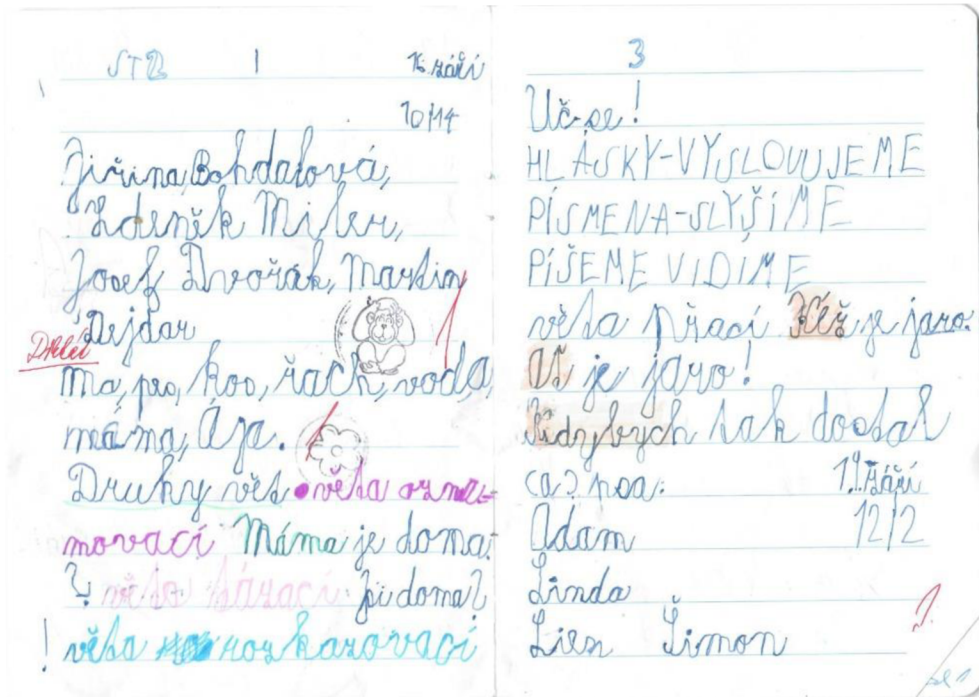 STR 1 16. září
10/14
Jiřina Bohdalová,
Zdeněk Miler,
Josef Dvořák, Martin
Dejdar
ma, pes, kos, řach, voda,
máma, Ája.
Druhy vět • věta ozna-
movací Máma je doma.
? věta tázací je doma?
! věta rozkazovací
3
Uč se!
HLÁSKY-VYSLOVUJEME
PÍSMENA-SLYŠÍME
PÍŠEME VIDIME
věta přací Kéž je jaro.
Ať je jaro!
Kdybych tak dostal
19. září
Adam 12/2
Linda
Šimon
1.